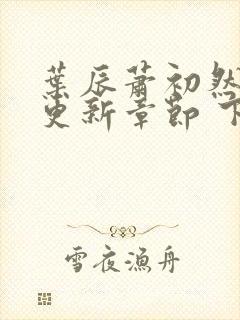 葉辰蕭初然
更新章節 下
雪夜漁舟